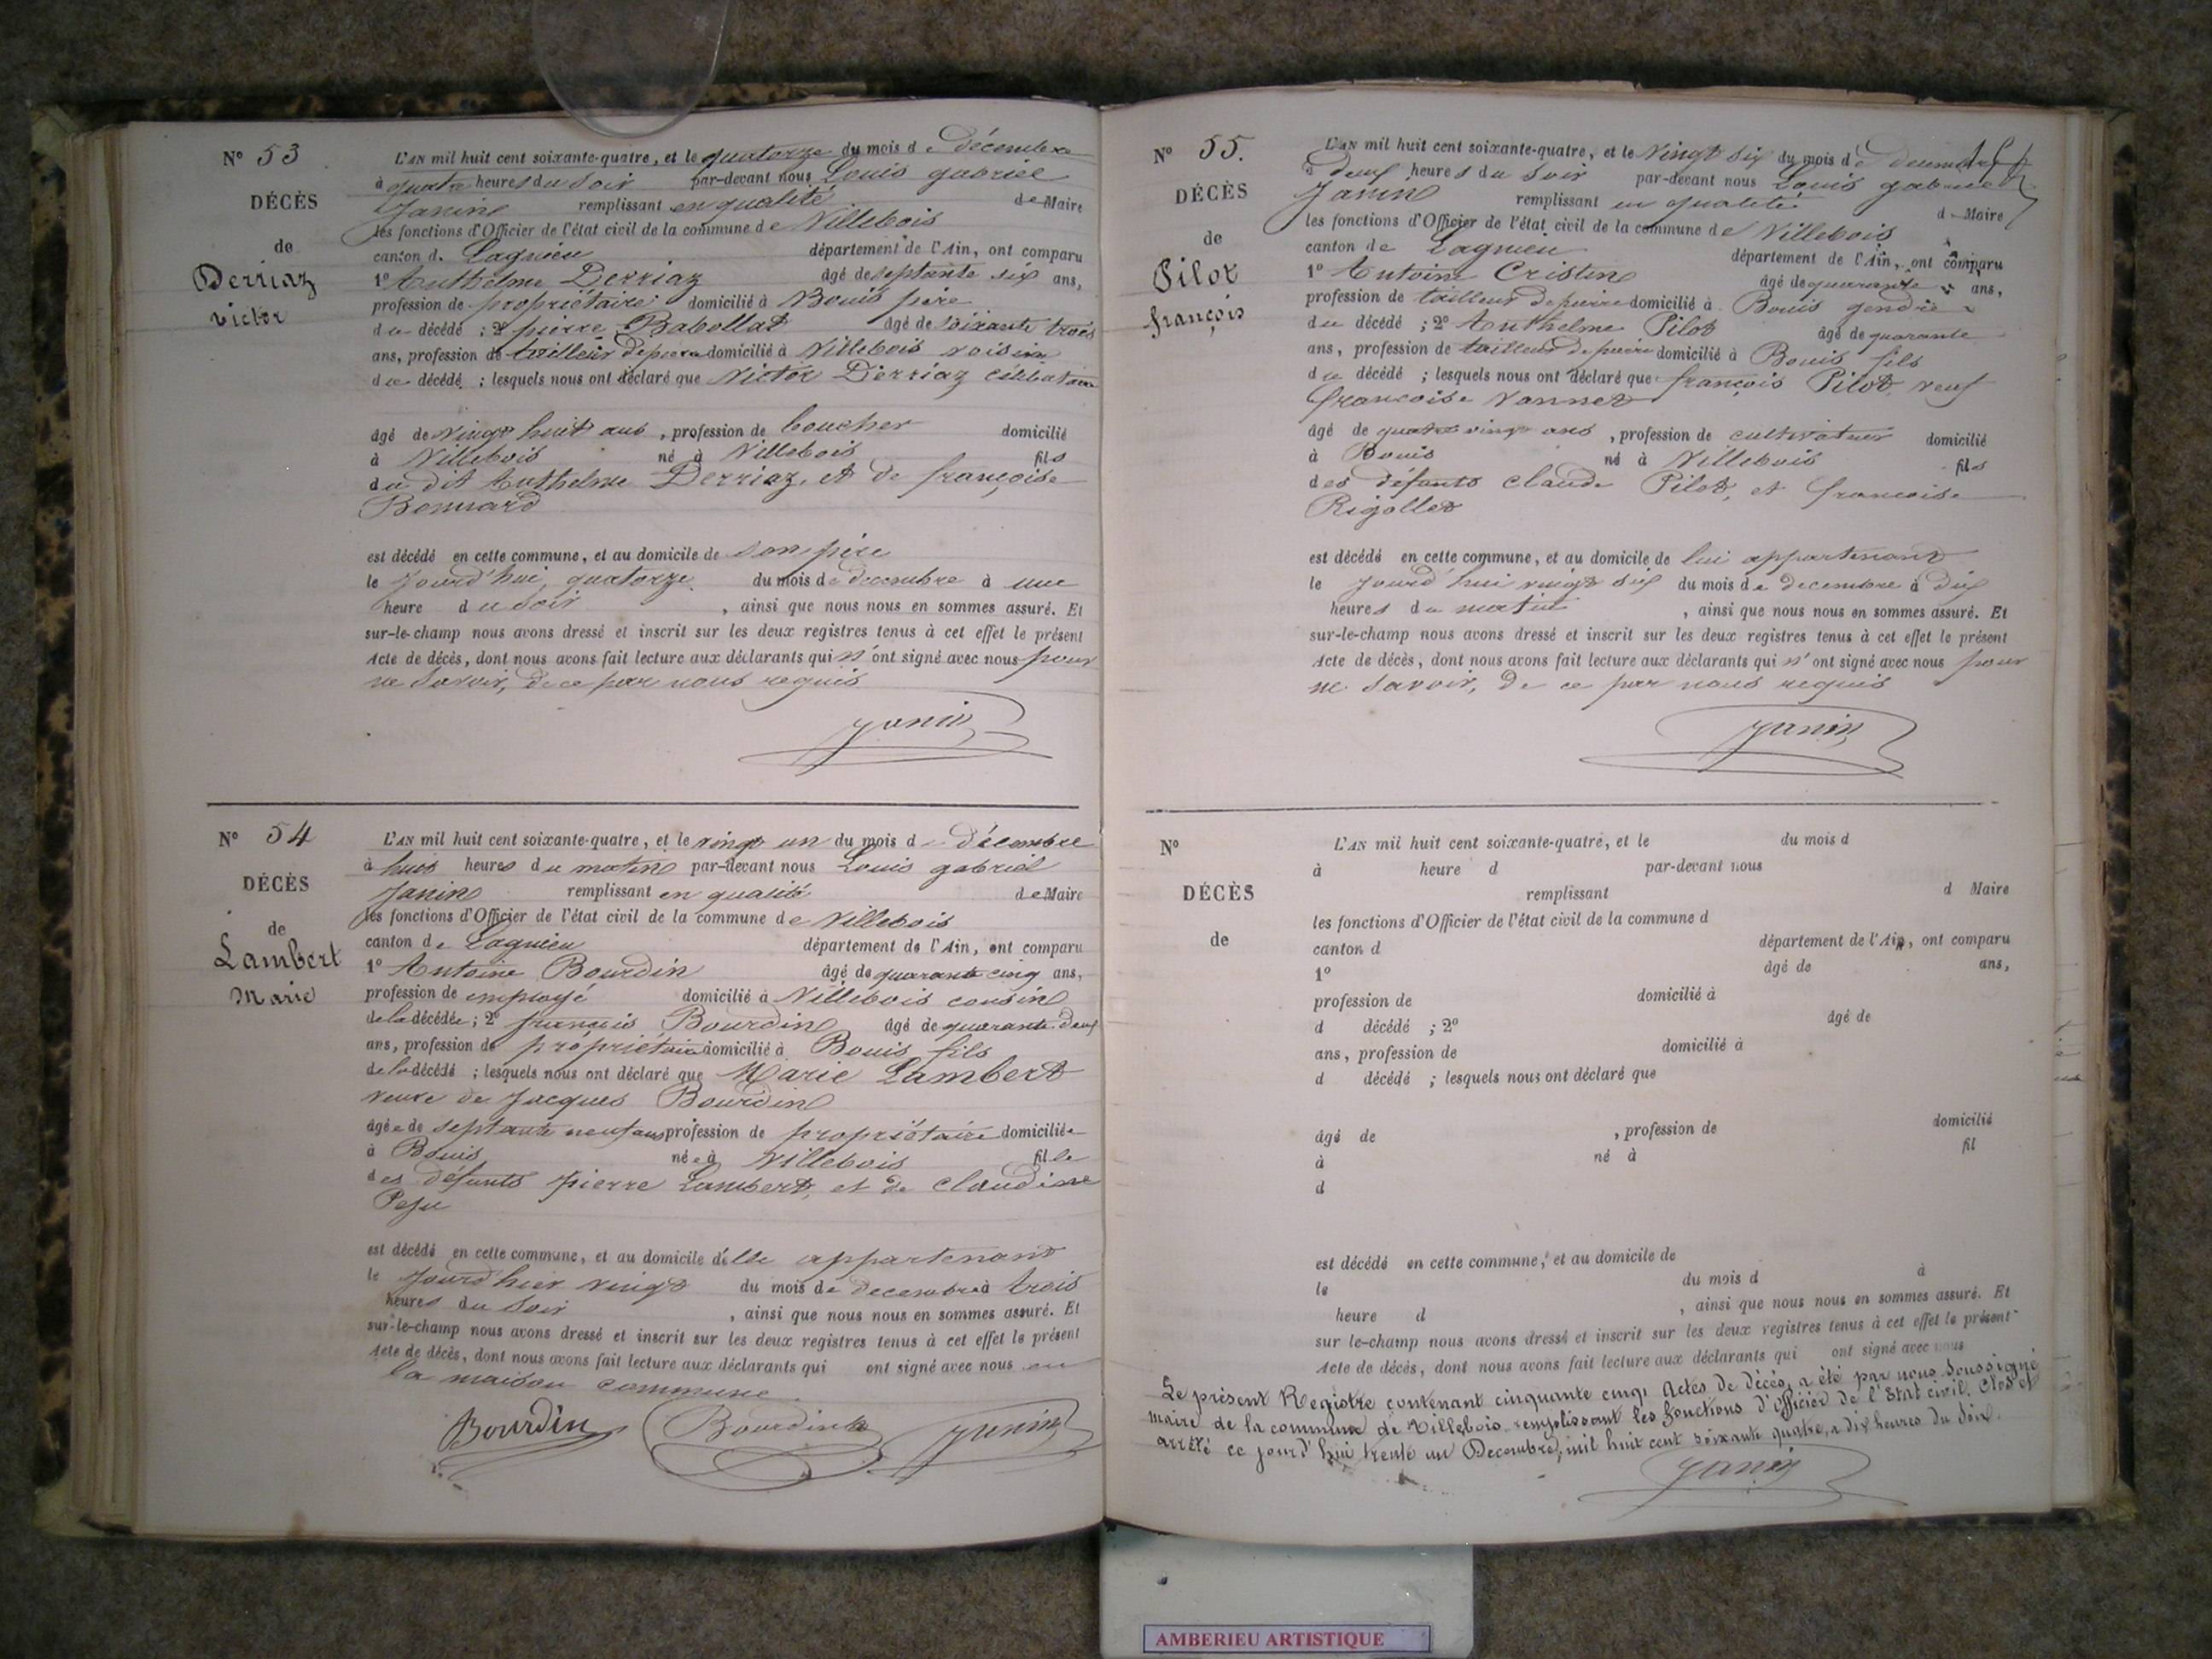 N° 53
DÉCÈS
de
Derriaz
victor
L'AN mil huit cent soixante-quatre, et le quatorze du mois de décembre
à quatre heures du soir par-devant nous Louis gabriel
Janin remplissant en qualité de Maire
les fonctions d'Officier de l'état civil de la commune de Villebois
canton de Lagnieu département de l'Ain, ont comparu
1° Anthelme Derriaz âgé de septante six ans,
profession de propriétaire domicilié à Bouis père
du décédé ; 2° pierre Babollat âgé de soixante trois
ans, profession de tailleur de pierre domicilié à Villebois voisin
du décédé ; lesquels nous ont déclaré que Victor Derriaz célibataire
âgé de vingt huit ans , profession de boucher domicilié
à Villebois né à Villebois fils
du dit Anthelme Derriaz, et de françoise
Bonnard
est décédé en cette commune, et au domicile de son père
le Jourd'hui quatorze du mois de decembre à une
heure du soir , ainsi que nous nous en sommes assuré. Et
sur-le-champ nous avons dressé et inscrit sur les deux registres tenus à cet effet le présent
Acte de décès, dont nous avons fait lecture aux déclarants qui n'ont signé avec nous pour
ne savoir, de ce par nous requis
Janin
N° 54
DÉCÈS
de
Lambert
Marie
L'AN mil huit cent soixante-quatre, et le vingt un du mois de décembre
à huit heures du matin par-devant nous Louis gabriel
Janin remplissant en qualité de Maire
les fonctions d'Officier de l'état civil de la commune de Villebois
canton de Lagnieu département de l'Ain, ont comparu
1° Antoine Bourdin âgé de quarante cinq ans,
profession de employé domicilié à Villebois cousin
de la décédée ; 2° françois Bourdin âgé de quarante deux
ans, profession de propriétaire domicilié à Bouis fils
de la décédé ; lesquels nous ont déclaré que Marie Lambert
veuve de Jacques Bourdin
âgée de septante neuf ans profession de propriétaire domiciliée
à Bouis née à Villebois fille
des défunts pierre Lambert, et de claudine
Pesu
est décédé en cette commune, et au domicile d'elle appartenant
le Jourd'hier vingt du mois de decembre à trois
heures du soir , ainsi que nous nous en sommes assuré. Et
sur-le-champ nous avons dressé et inscrit sur les deux registres tenus à cet effet le présent
Acte de décès, dont nous avons fait lecture aux déclarants qui ont signé avec nous en
la maison commune
Bourdin Bourdin Janin
N° 55.
DÉCÈS
de
Pilot
françois
L'AN mil huit cent soixante-quatre, et le vingt six du mois de decembre
à deux heures du soir par-devant nous Louis gabriel
Janin remplissant en qualité de Maire
les fonctions d'Officier de l'état civil de la commune de Villebois
canton de Lagnieu département de l'Ain, ont comparu
1° Antoine Cristin âgé de quarante ans,
profession de tailleur de pierre domicilié à Bouis gendre
du décédé ; 2° Anthelme Pilot âgé de quarante
ans, profession de tailleur de pierre domicilié à Bouis fils
du décédé ; lesquels nous ont déclaré que françois Pilot, veuf
françoise Vannet
âgé de quatre vingt ans , profession de cultivateur domicilié
à Bouis né à Villebois fils
des défunts claude Pilot, et francoise
Rigollet
est décédé en cette commune, et au domicile de lui appartenant
le Jourd'hui vingt six du mois de decembre à dix
heures du matin , ainsi que nous nous en sommes assuré. Et
sur-le-champ nous avons dressé et inscrit sur les deux registres tenus à cet effet le présent
Acte de décès, dont nous avons fait lecture aux déclarants qui n'ont signé avec nous pour
ne savoir, de ce par nous requis
Janin
N°
DÉCÈS
de
L'AN mil huit cent soixante-quatre, et le du mois d
à heure d par-devant nous
remplissant d Maire
les fonctions d'Officier de l'état civil de la commune d
canton d département de l'Ain, ont comparu
1° âgé de ans,
profession de domicilié à
d décédé ; 2° âgé de
ans, profession de domicilié à
d décédé ; lesquels nous ont déclaré que
âgé de , profession de domicilié
à né à fil
d
est décédé en cette commune, et au domicile de
le du mois d à
heure d , ainsi que nous nous en sommes assuré. Et
sur le-champ nous avons dressé et inscrit sur les deux registres tenus à cet effet le présent
Acte de décès, dont nous avons fait lecture aux déclarants qui ont signé avec nous
Le présent Registre contenant cinquante cinq actes de décès, a été par nous soussigné
maire de la commune de Villebois remplissant les fonctions d'officier de l'Etat civil. Clos et
arrêté ce jourd'hui trente un Decembre, mil huit cent soixante quatre, a dix heures du soir.
Janin
AMBERIEU ARTISTIQUE